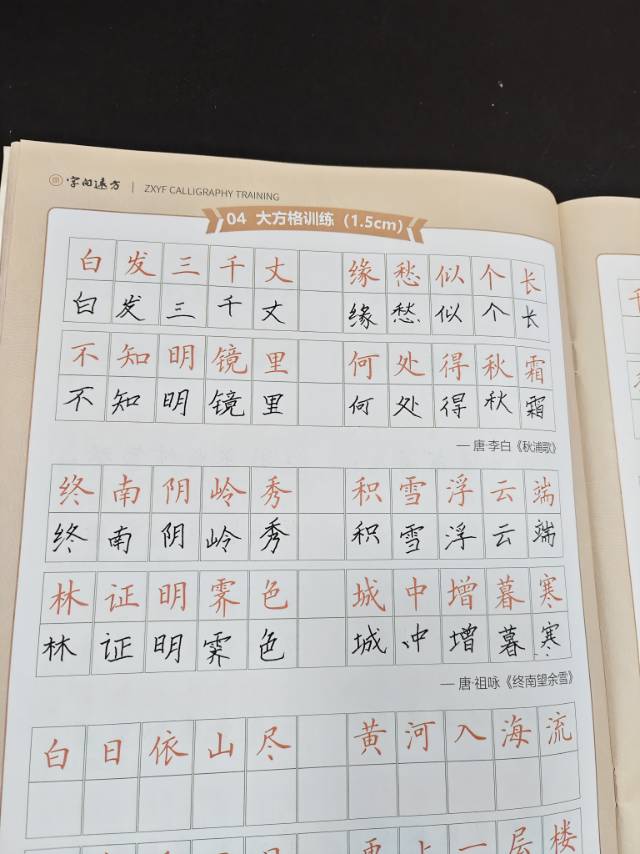 字向远方 | ZXYF CALLIGRAPHY TRAINING
04 大方格训练（1.5cm）
白发三千丈 缘愁似个长
白发三千丈 缘愁似个长
不知明镜里 何处得秋霜
不知明镜里 何处得秋霜
— 唐·李白《秋浦歌》
终南阴岭秀 积雪浮云端
终南阴岭秀 积雪浮云端
林证明霁色 城中增暮寒
林证明霁色 城冲增暮寒
— 唐·祖咏《终南望余雪》
白日依山尽 黄河入海流
上一层楼